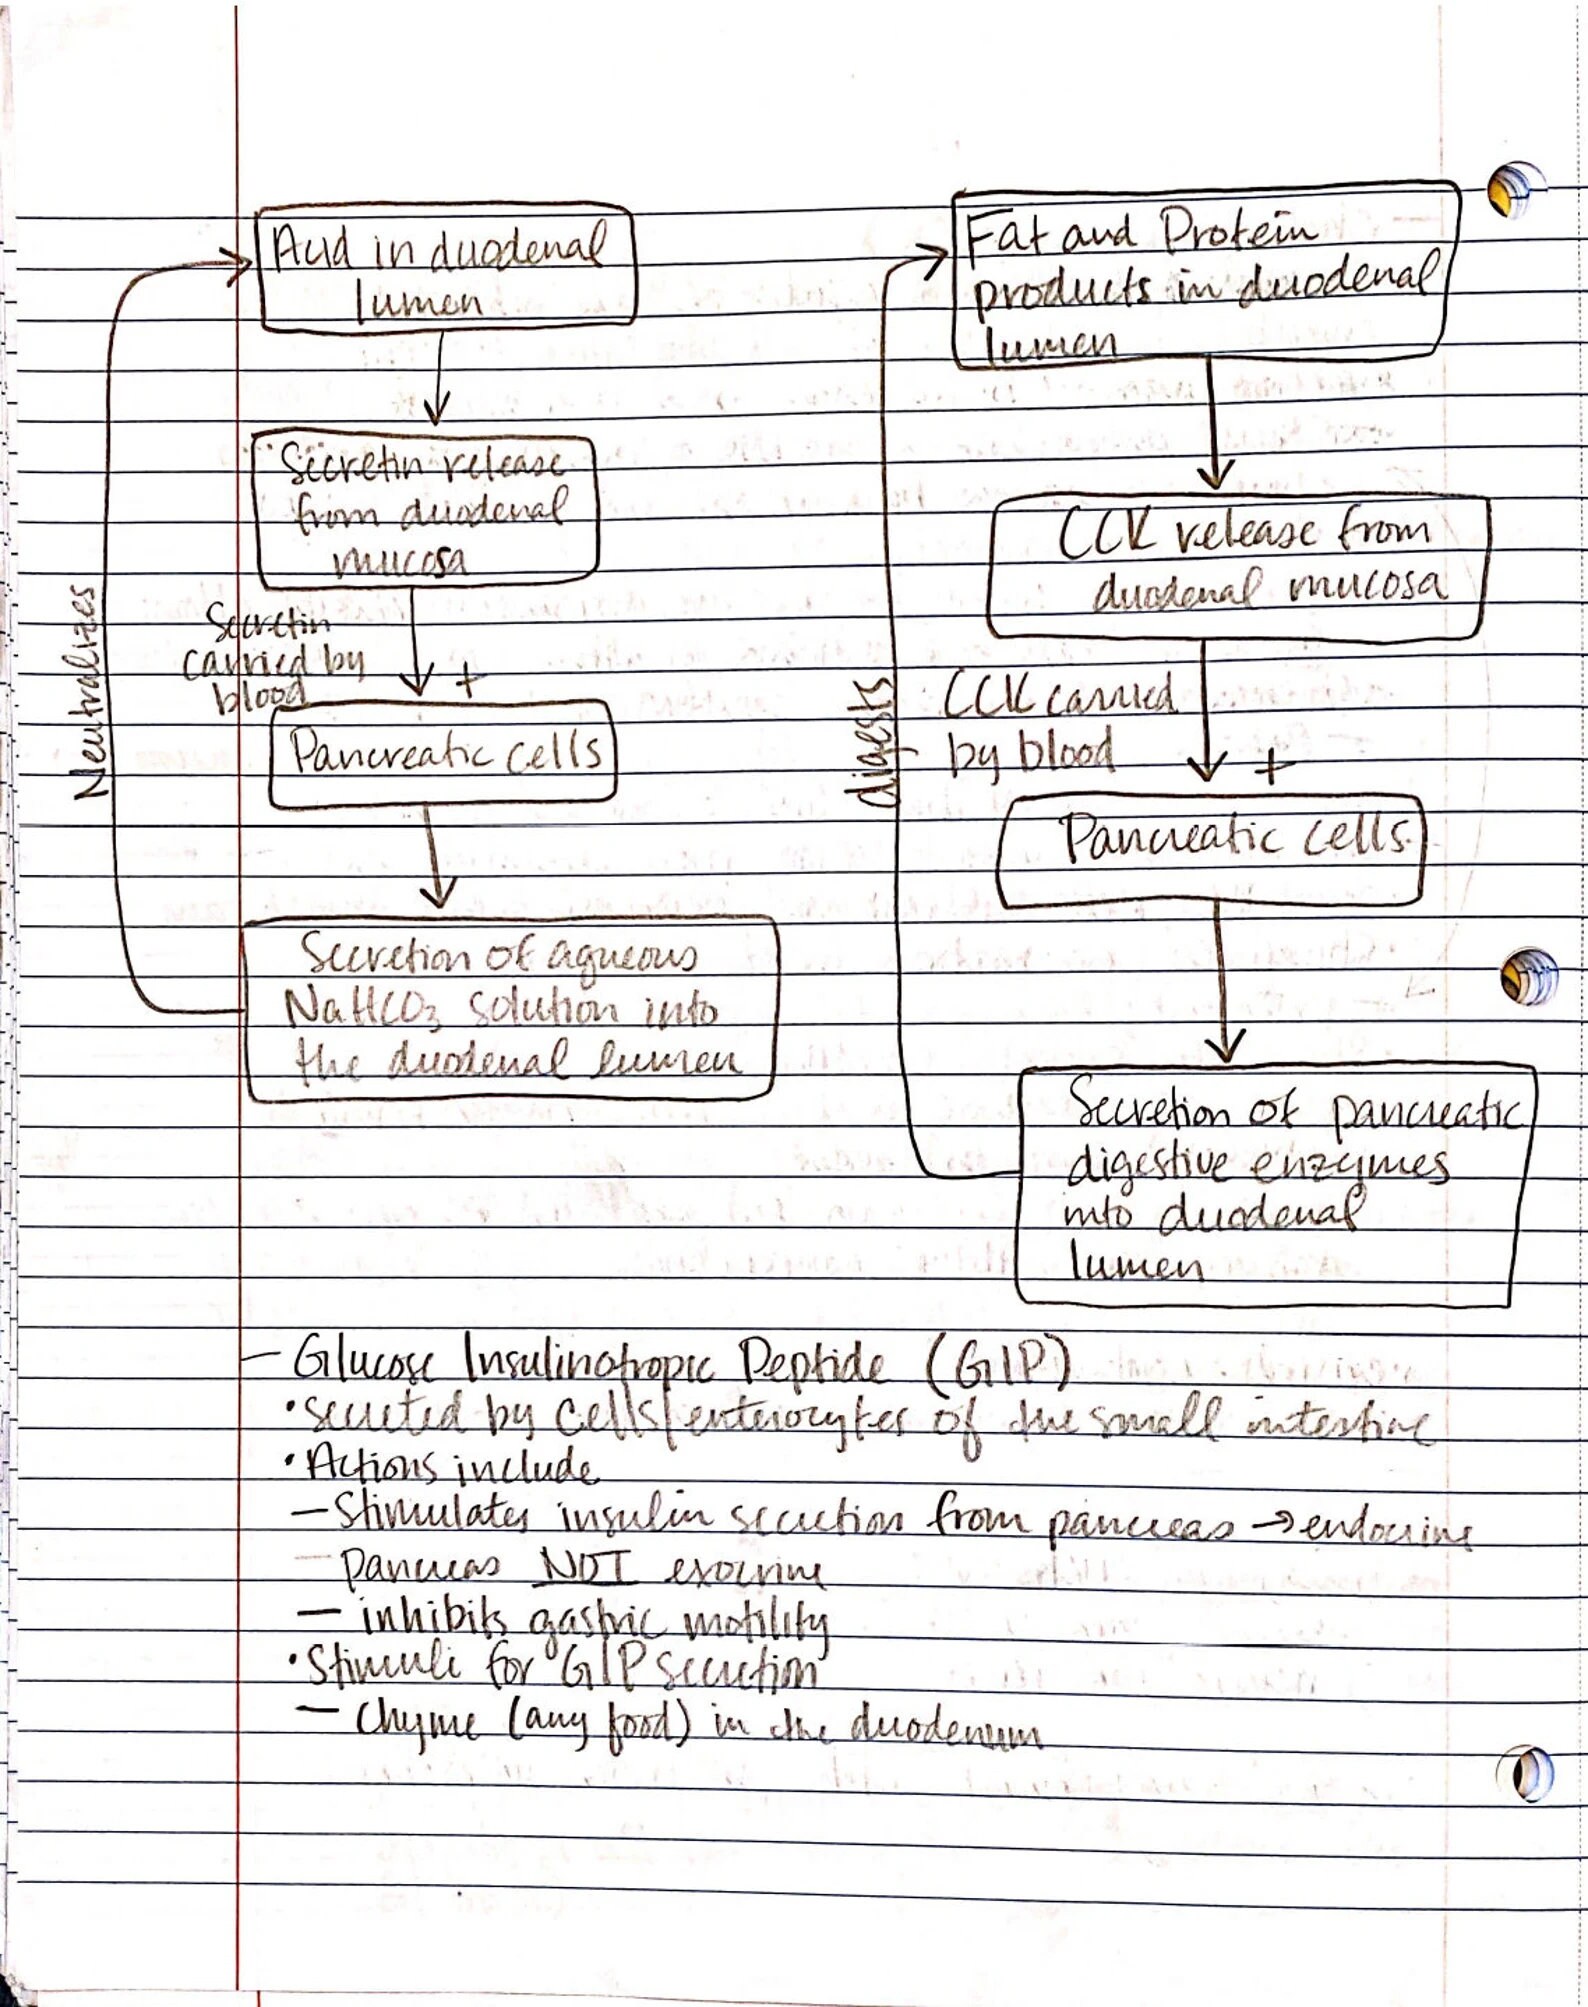 Acid in duodenal
lumen
Secretin release
from duodenal
mucosa
Secretin
carried by
blood
+
Pancreatic cells
Secretion of aqueous
NaHCO3 solution into
the duodenal lumen
Neutralizes
Fat and Protein
products in duodenal
lumen
CCK release from
duodenal mucosa
CCK carried
by blood
+
Pancreatic cells
Secretion of pancreatic
digestive enzymes
into duodenal
lumen
digests
– Glucose Insulinotropic Peptide (GIP)
• secreted by cells/enterocytes of the small intestine
• Actions include
– Stimulates insulin secretion from pancreas → endocrine
– pancreas NOT exocrine
– inhibits gastric motility
• Stimuli for GIP secretion
– chyme (any food) in the duodenum